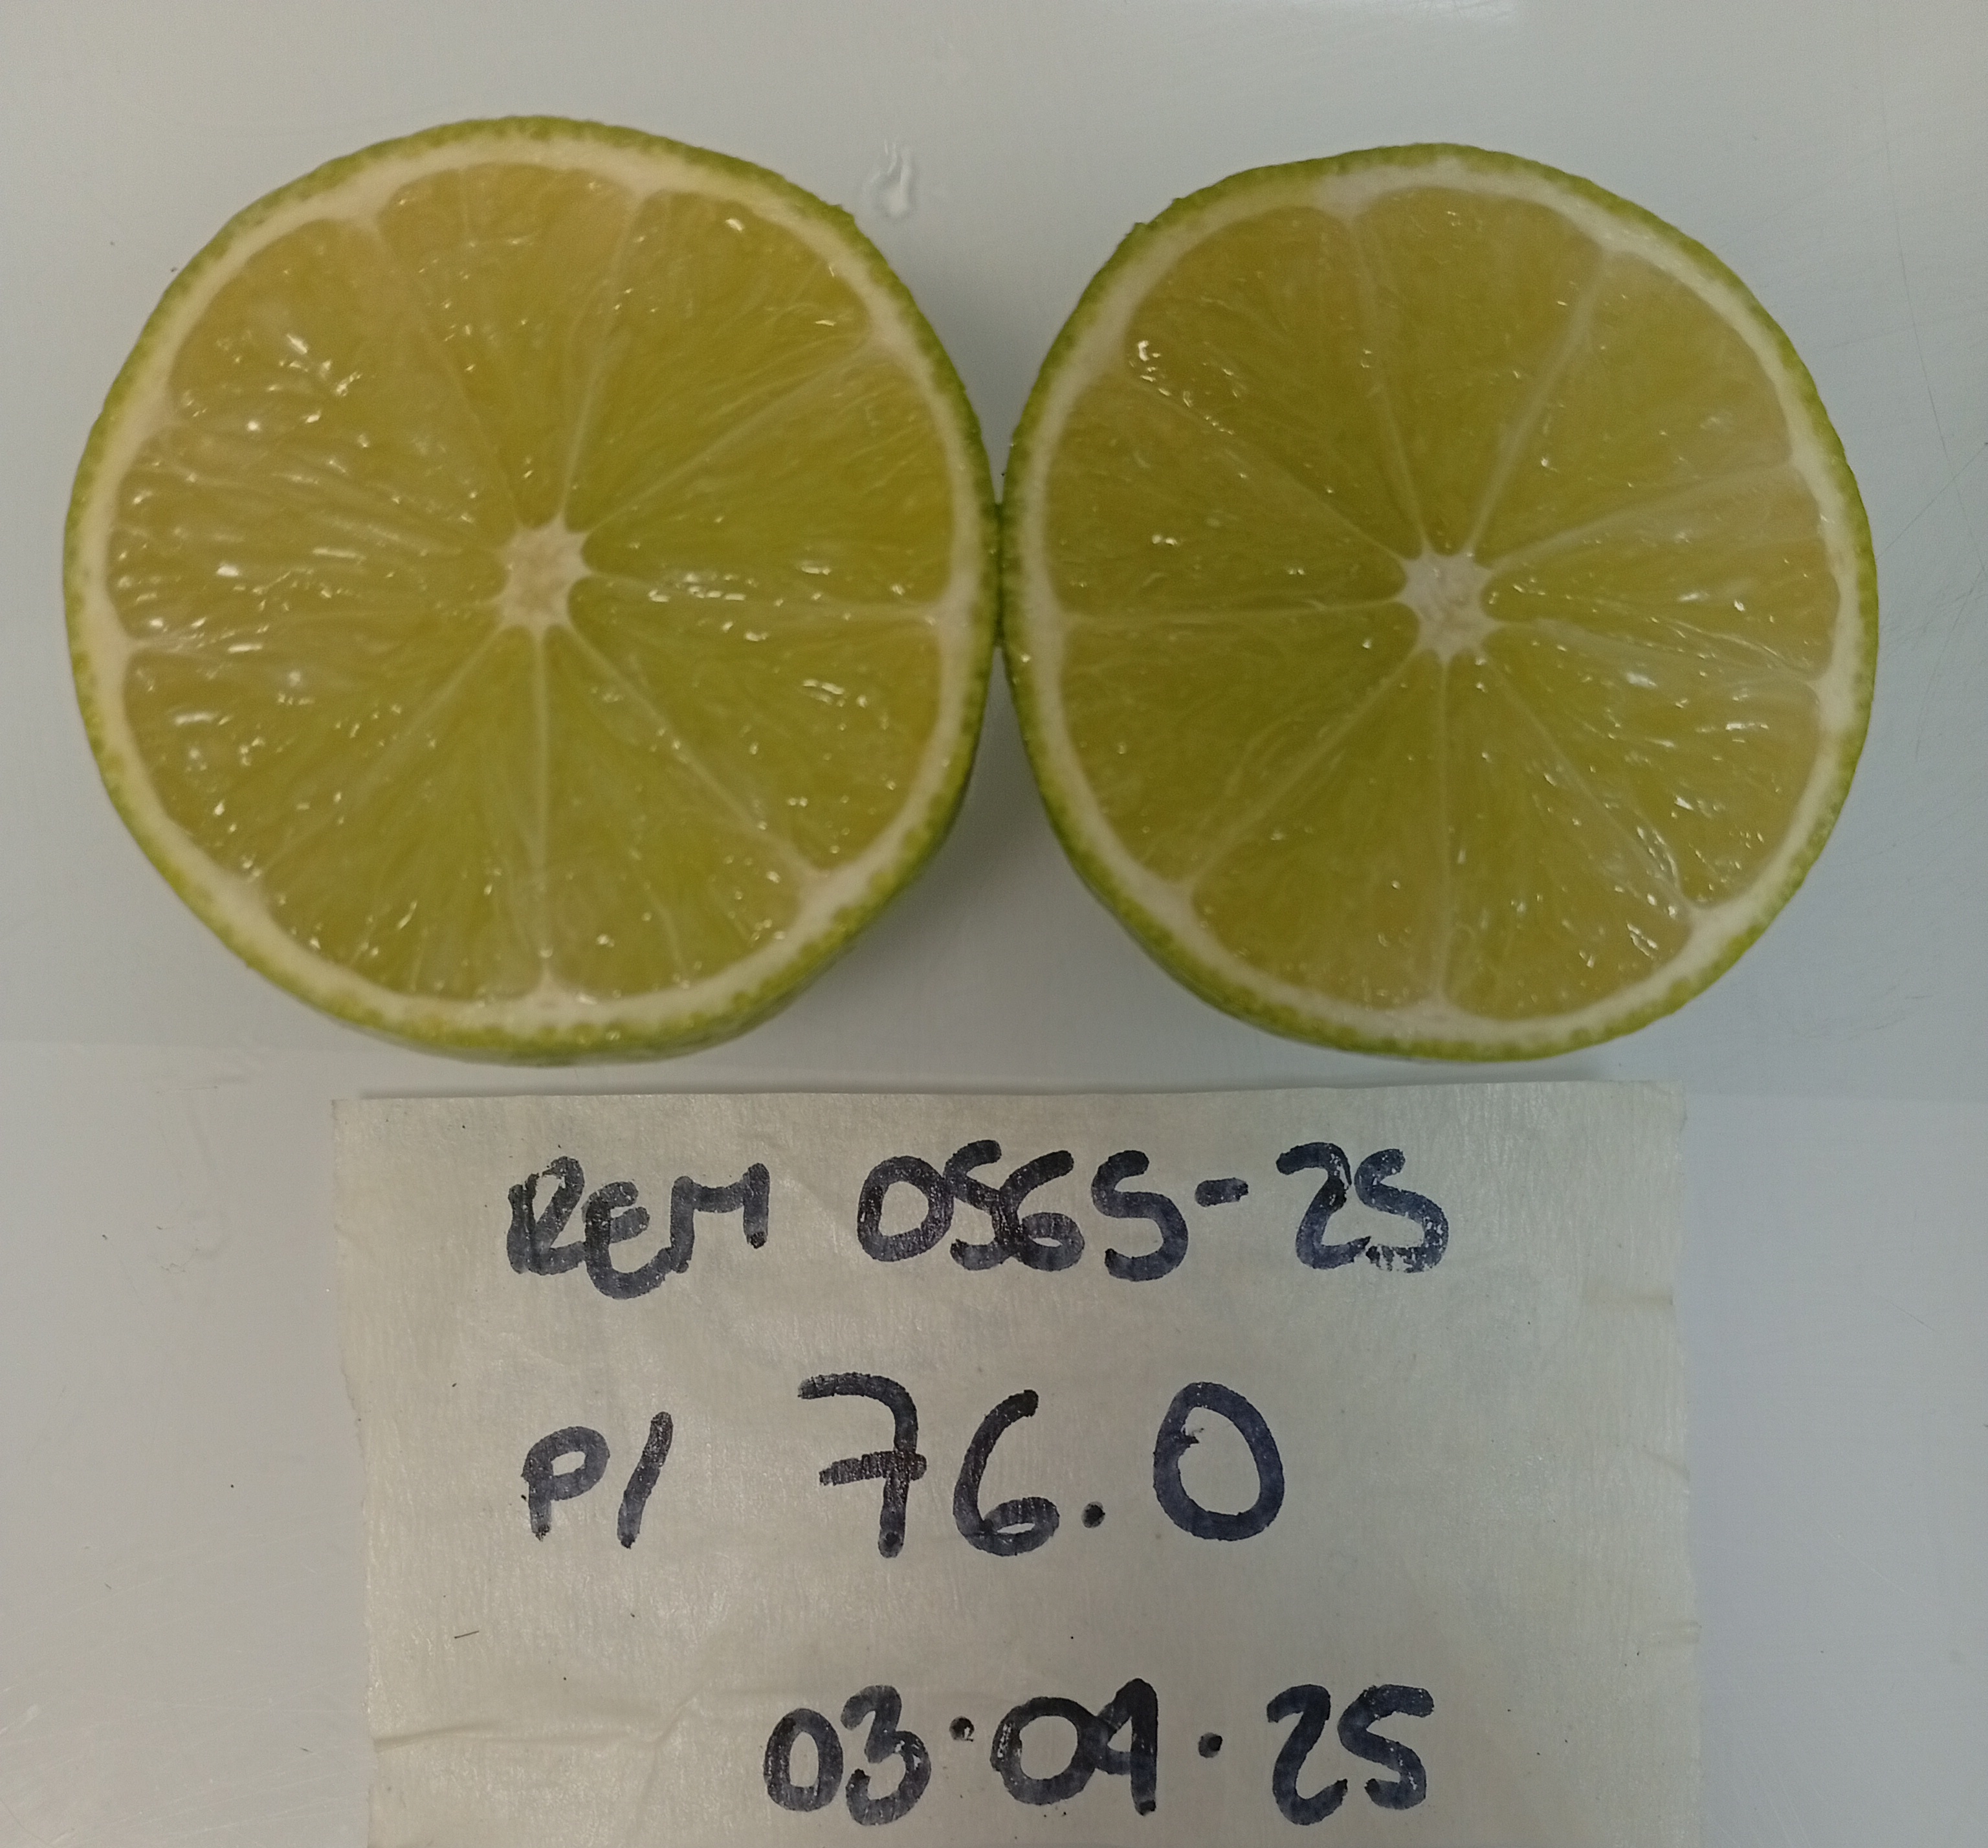 REM 0565-25
P/ 76.0
03.09.25